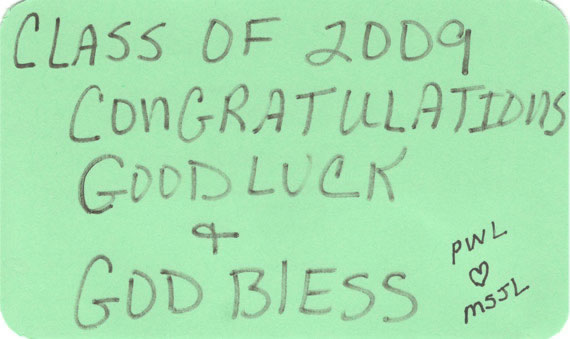 CLASS OF 2009
CONGRATULATIONS
GOOD LUCK
+
GOD BlESS
PWL
♡
MSJL